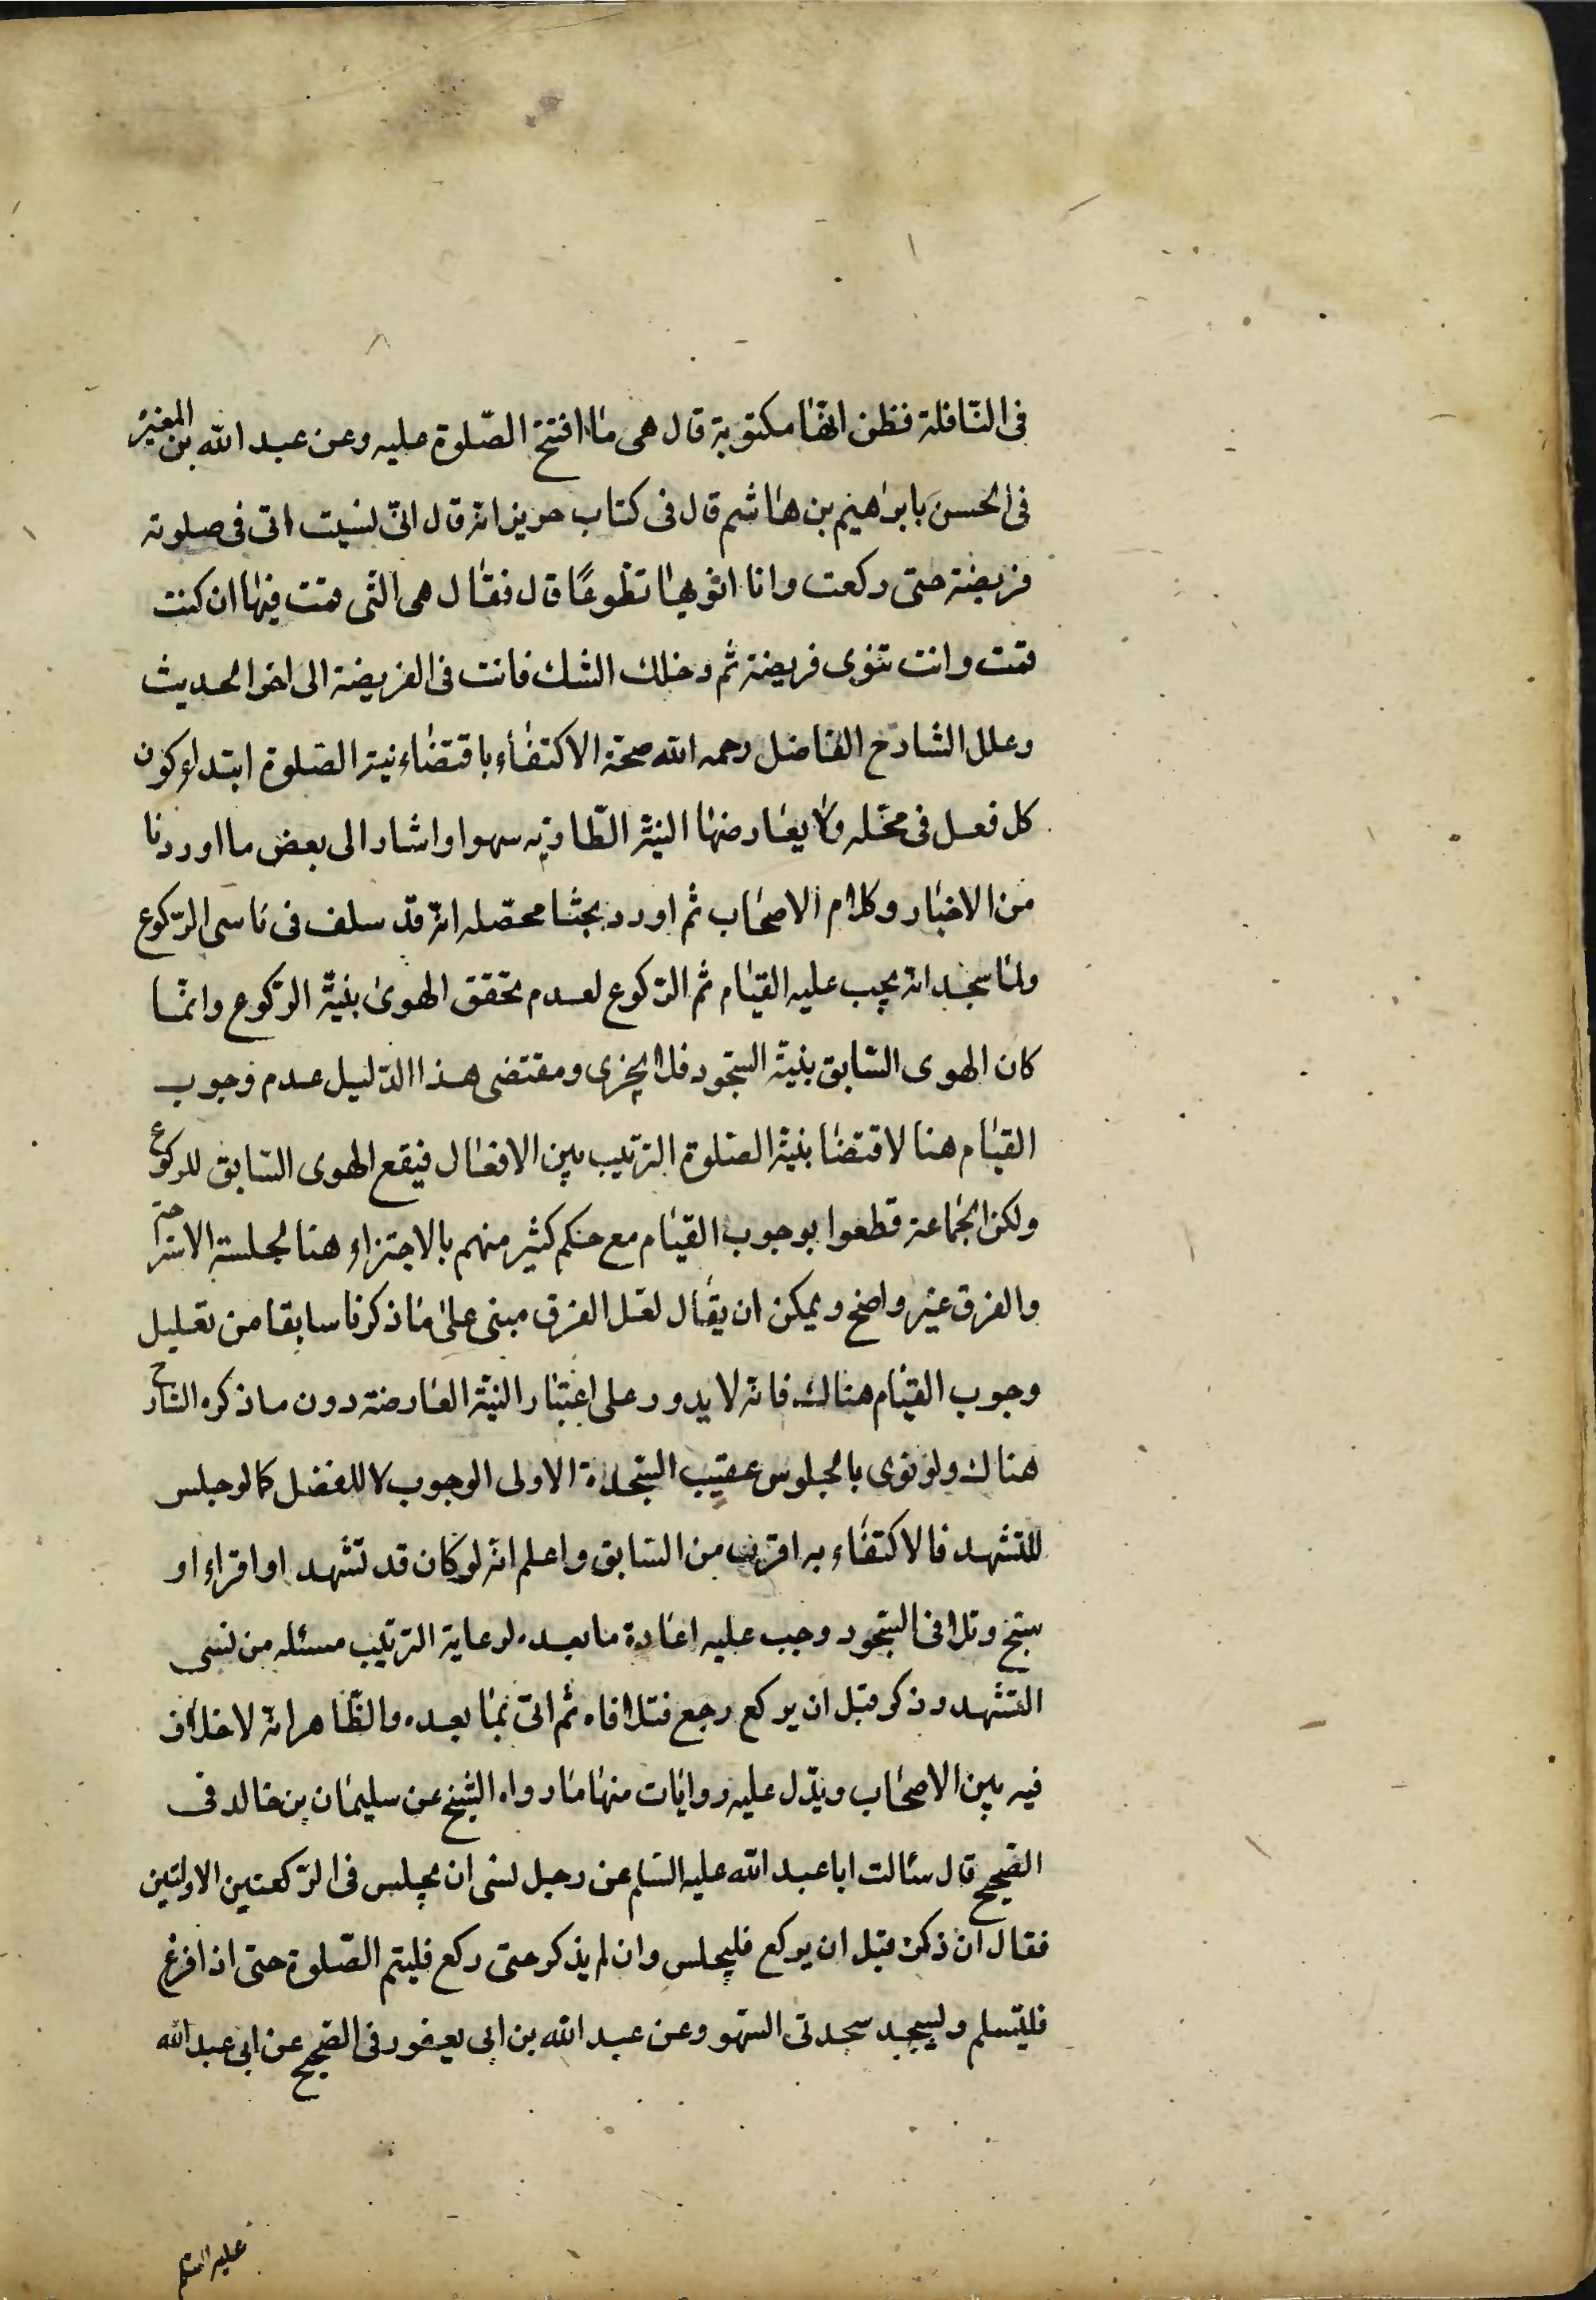 فى النّافلة فظن انّها مكتوبة قال هى ما افتتح الصّلوة عليه وعن عبد الله بن المغيرة
فى الحسن بابراهيم بن هاشم قال فى كتاب حريز انه قال انّى نسيت انى فى صلوة
فريضة حتى ركعت وانا انويها تطوعًا قال فقال هى التى قمت فيها ان كنت
قمت وانت تنوى فريضة ثم دخلك الشك فانت فى الفريضة الى اخر الحديث
وعلل الشارح الفاضل رحمه الله صحة الاكتفاء باقتضاء نية الصلوة ابتداء كون
كل فعل فى محله ولا يعارضها النية الطارية سهوا واشار الى بعض ما اوردنا
من الاخبار وكلام الاصحاب ثم اورد بحثا محصله انه قد سلف فى ناسى الركوع
ولما سجد انه يجب عليه القيام ثم الركوع لعدم تحقق الهوى بنية الركوع وانما
كان الهوى السابق بنية السجود فلا يجزى ومقتضى هذا الدليل عدم وجوب
القيام هنا لاقتضا بنية الصلوة الترتيب بين الافعال فيقع الهوى السابق للركوع
ولكن الجماعة قطعوا بوجوب القيام مع حكم كثير منهم بالاجتزاء هنا لجلسة الاستراحة
والفرق غير واضح ويمكن ان يقال لعل الفرق مبنى على ما ذكرنا سابقا من تعليل
وجوب القيام هناك فانه لا يدور على اعتبار النية العارضة دون ما ذكره الشارح
هناك ولو نوى بالجلوس عقيب السجدة الاولى الوجوب لا للفصل كما لو جلس
للتشهد فالاكتفاء به اقرب من السابق واعلم انه لو كان قد تشهد او اقراء او
سبح وتلافى السجود وجب عليه اعادة ما بعده لرعاية الترتيب مسئله من نسى
التشهد وذكر قبل ان يركع رجع فتلافاه ثم اتى بما بعده والظاهر انه لا خلاف
فيه بين الاصحاب ويدل عليه روايات منها ما رواه الشيخ عن سليمان بن خالد فى
الصحيح قال سئالت ابا عبد الله عليه السلم عن رجل نسى ان يجلس فى الركعتين الاولتين
فقال ان ذكر قبل ان يركع فليجلس وان لم يذكر حتى ركع فليتم الصّلوة حتى اذا فرغ
فليسلم وليسجد سجدتى السهو وعن عبد الله بن ابى يعفور فى الصحيح عن ابى عبد الله
عليه السلم